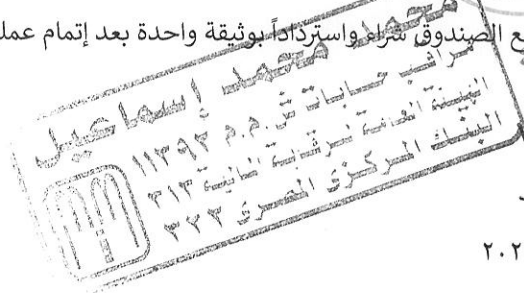 ع الصندوق شراء واسترداداً بوثيقة واحدة بعد إتمام عمل
محمد محمد إسماعيل
مراقب حسابات ش.م.م ١١٣٩٣
الهيئة العامة للرقابة المالية ٣١٣
البنك المركزى المصرى ٣٢٣
٢٠٢